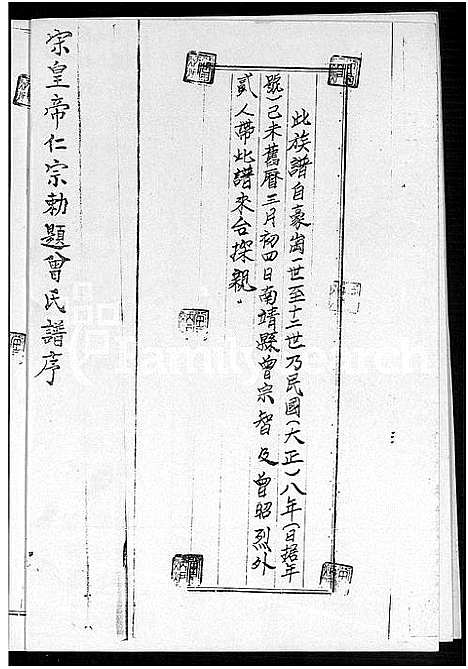 此族譜自豪崗一世至十二世乃民國(大正)八年(日据年
號)己未舊曆三月初四日南靖縣曾宗智及曾昭烈外
貳人帶此譜來台探親.
宋皇帝仁宗勅題曾氏譜序